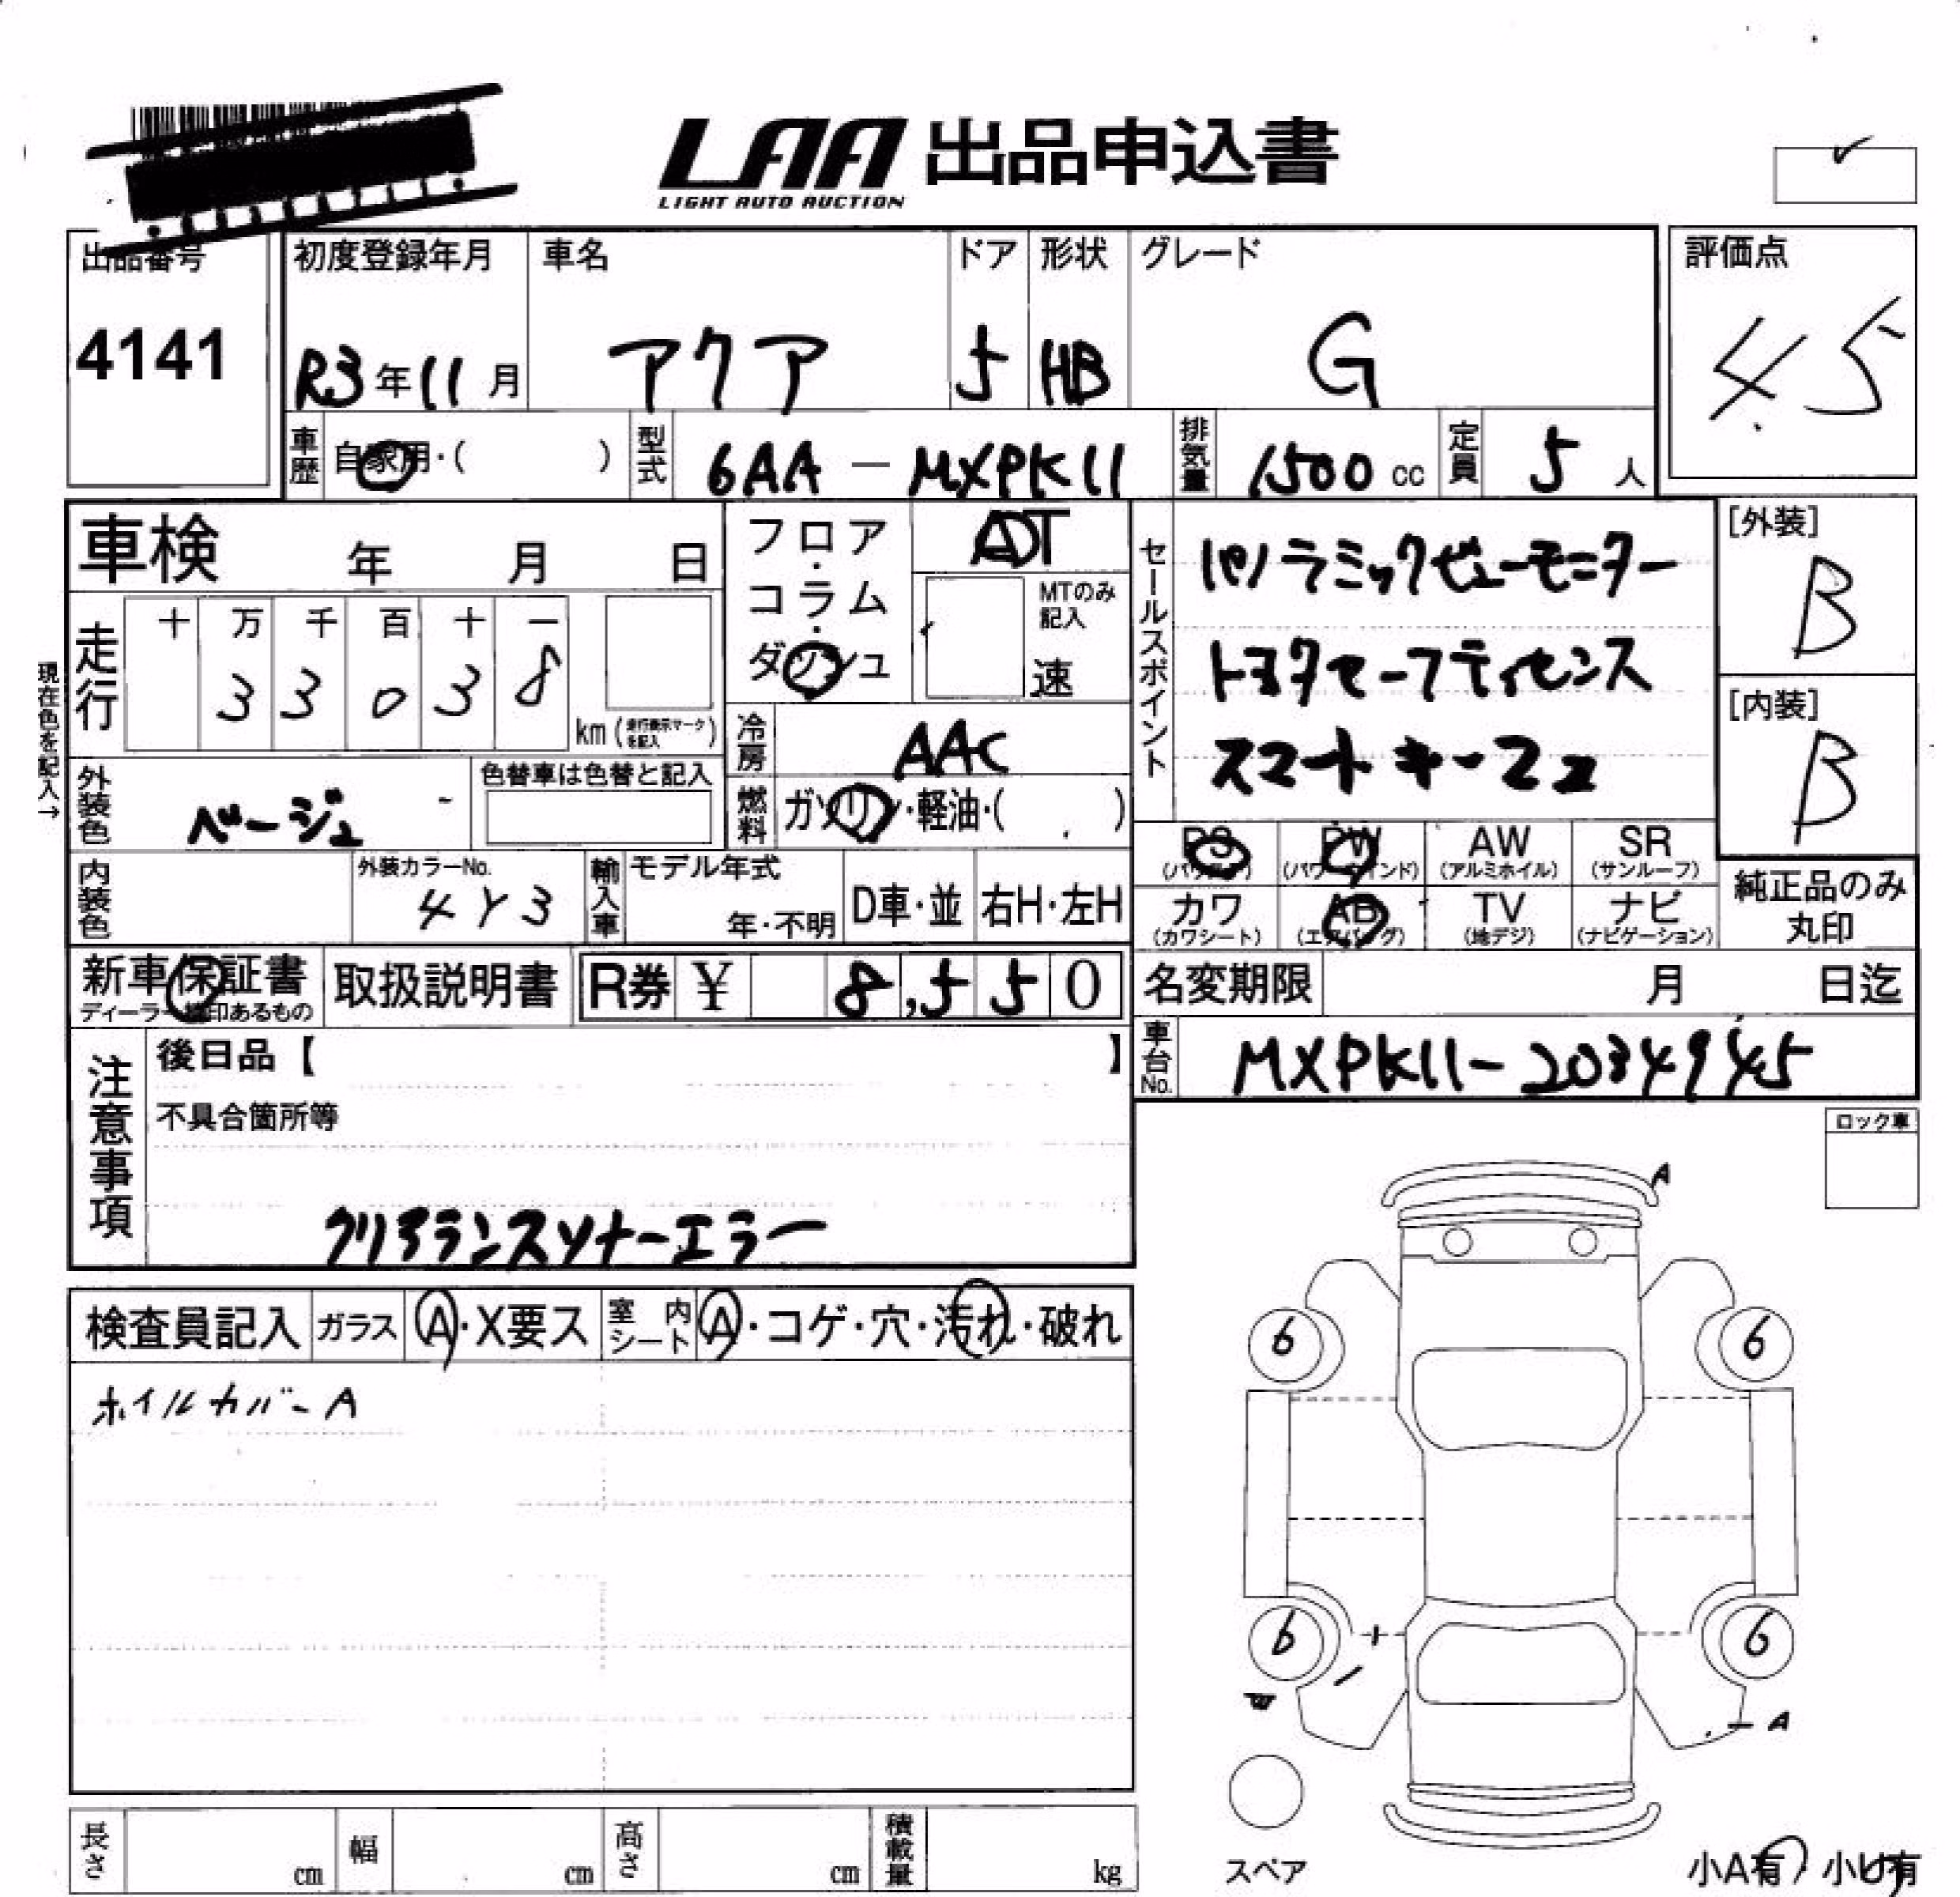 LAA 出品申込書
LIGHT AUTO AUCTION
出品番号
4141
初度登録年月
R3年11月
車名
アクア
ドア
5
形状
HB
グレード
G
評価点
4.5
車歴 自家用・( )
型式 6AA-MXPK11
排気量 1500 cc
定員 5人
車検 年 月 日
フロア・コラム・ダッシュ
ADT
MTのみ記入
速
セールスポイント
パノラミックビューモニター
トヨタセーフティセンス
スマートキー2コ
[外装]
B
[内装]
B
現在色を記入→
走行
十 万 千 百 十 一
3 3 0 3 8
km (走行表示マークを記入)
冷房 AAC
外装色 ベージュ
色替車は色替と記入
燃料 ガソリン・軽油・( )
PS (パワステ)
PW (パワーウインド)
AW (アルミホイル)
SR (サンルーフ)
内装色
外装カラーNo.
4Y3
輸入車
モデル年式
年・不明
D車・並
右H・左H
カワ (カワシート)
AB (エアバッグ)
TV (地デジ)
ナビ (ナビゲーション)
純正品のみ
丸印
新車保証書
取扱説明書
R券 ¥ 8,550
名変期限 月 日迄
車台No. MXPK11-2034945
注意事項
後日品【 】
不具合箇所等
クリアランスソナーエラー
ロック車
検査員記入
ガラス A・X要ス
室内シート A・コゲ・穴・汚れ・破れ
ホイルカバーA
A
6
6
6
6
A
スペア
小A有 小U有
長さ cm
幅 cm
高さ cm
積載量 kg